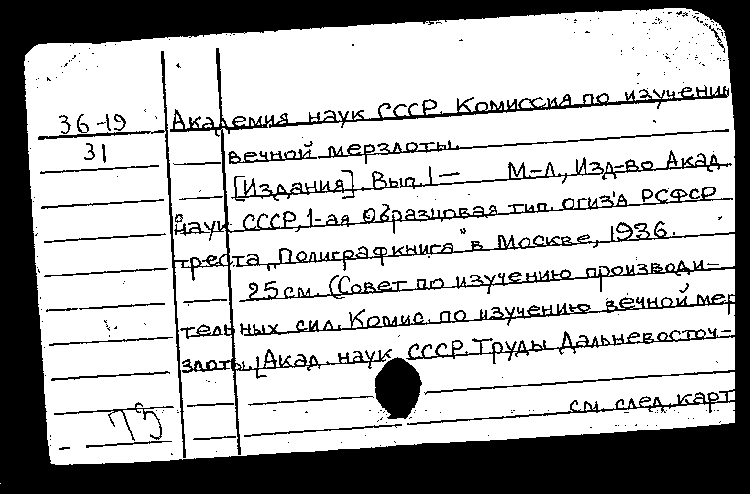 36-19 Академия наук СССР. Комиссия по изучению
31 вечной мерзлоты.
[Издания]. Вып. 1— М-Л., Изд-во Акад.
наук СССР, 1-ая Образцовая тип. огиз'а РСФСР
треста „Полиграфкнига" в Москве, 1936.
25 см. (Совет по изучению производи-
тельных сил. Комис. по изучению вечной мер
злоты. [Акад. наук СССР. Труды Дальневосточ-
см. след. карт